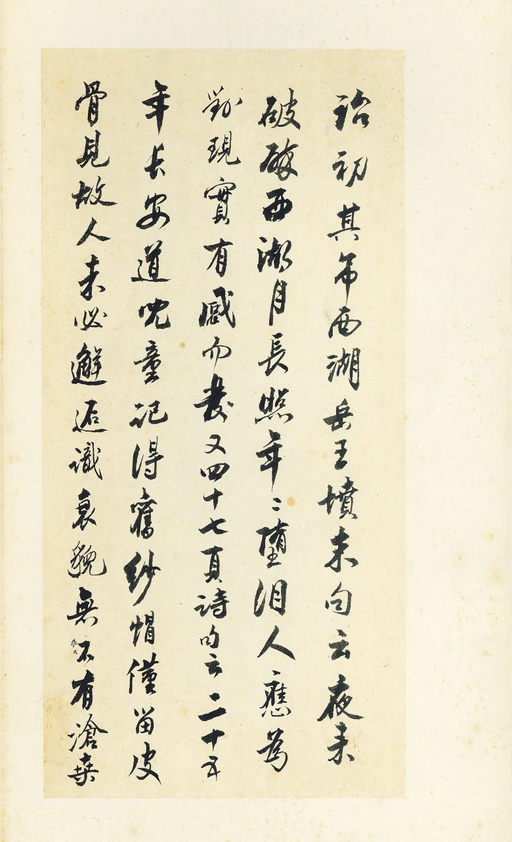 初其弔西湖岳王墳末句云夜來
破碎西湖月長照年〻墮泪人應為
對現實有感而發又四十七頁詩句云二十五
年長安道児童記得舊紗帽僅留皮
骨見故人未必邂逅識衰貌無不有滄桑